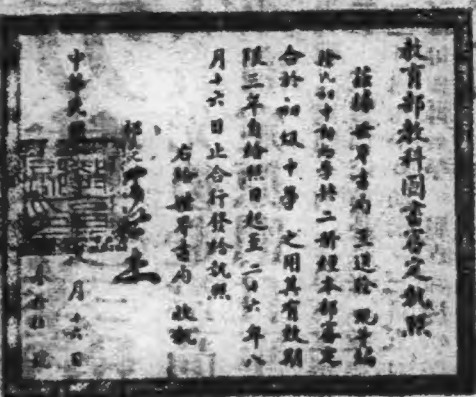 教育部教科圖書審定執照
茲據世界書局呈送徐
初中動物學共二冊經本部審定
合於初級中學 之用其有效期
限三年自給照日起至二十六年八
月十六日止合行發給執照
右給世界書局 收執
部長
中華民國 月十六日